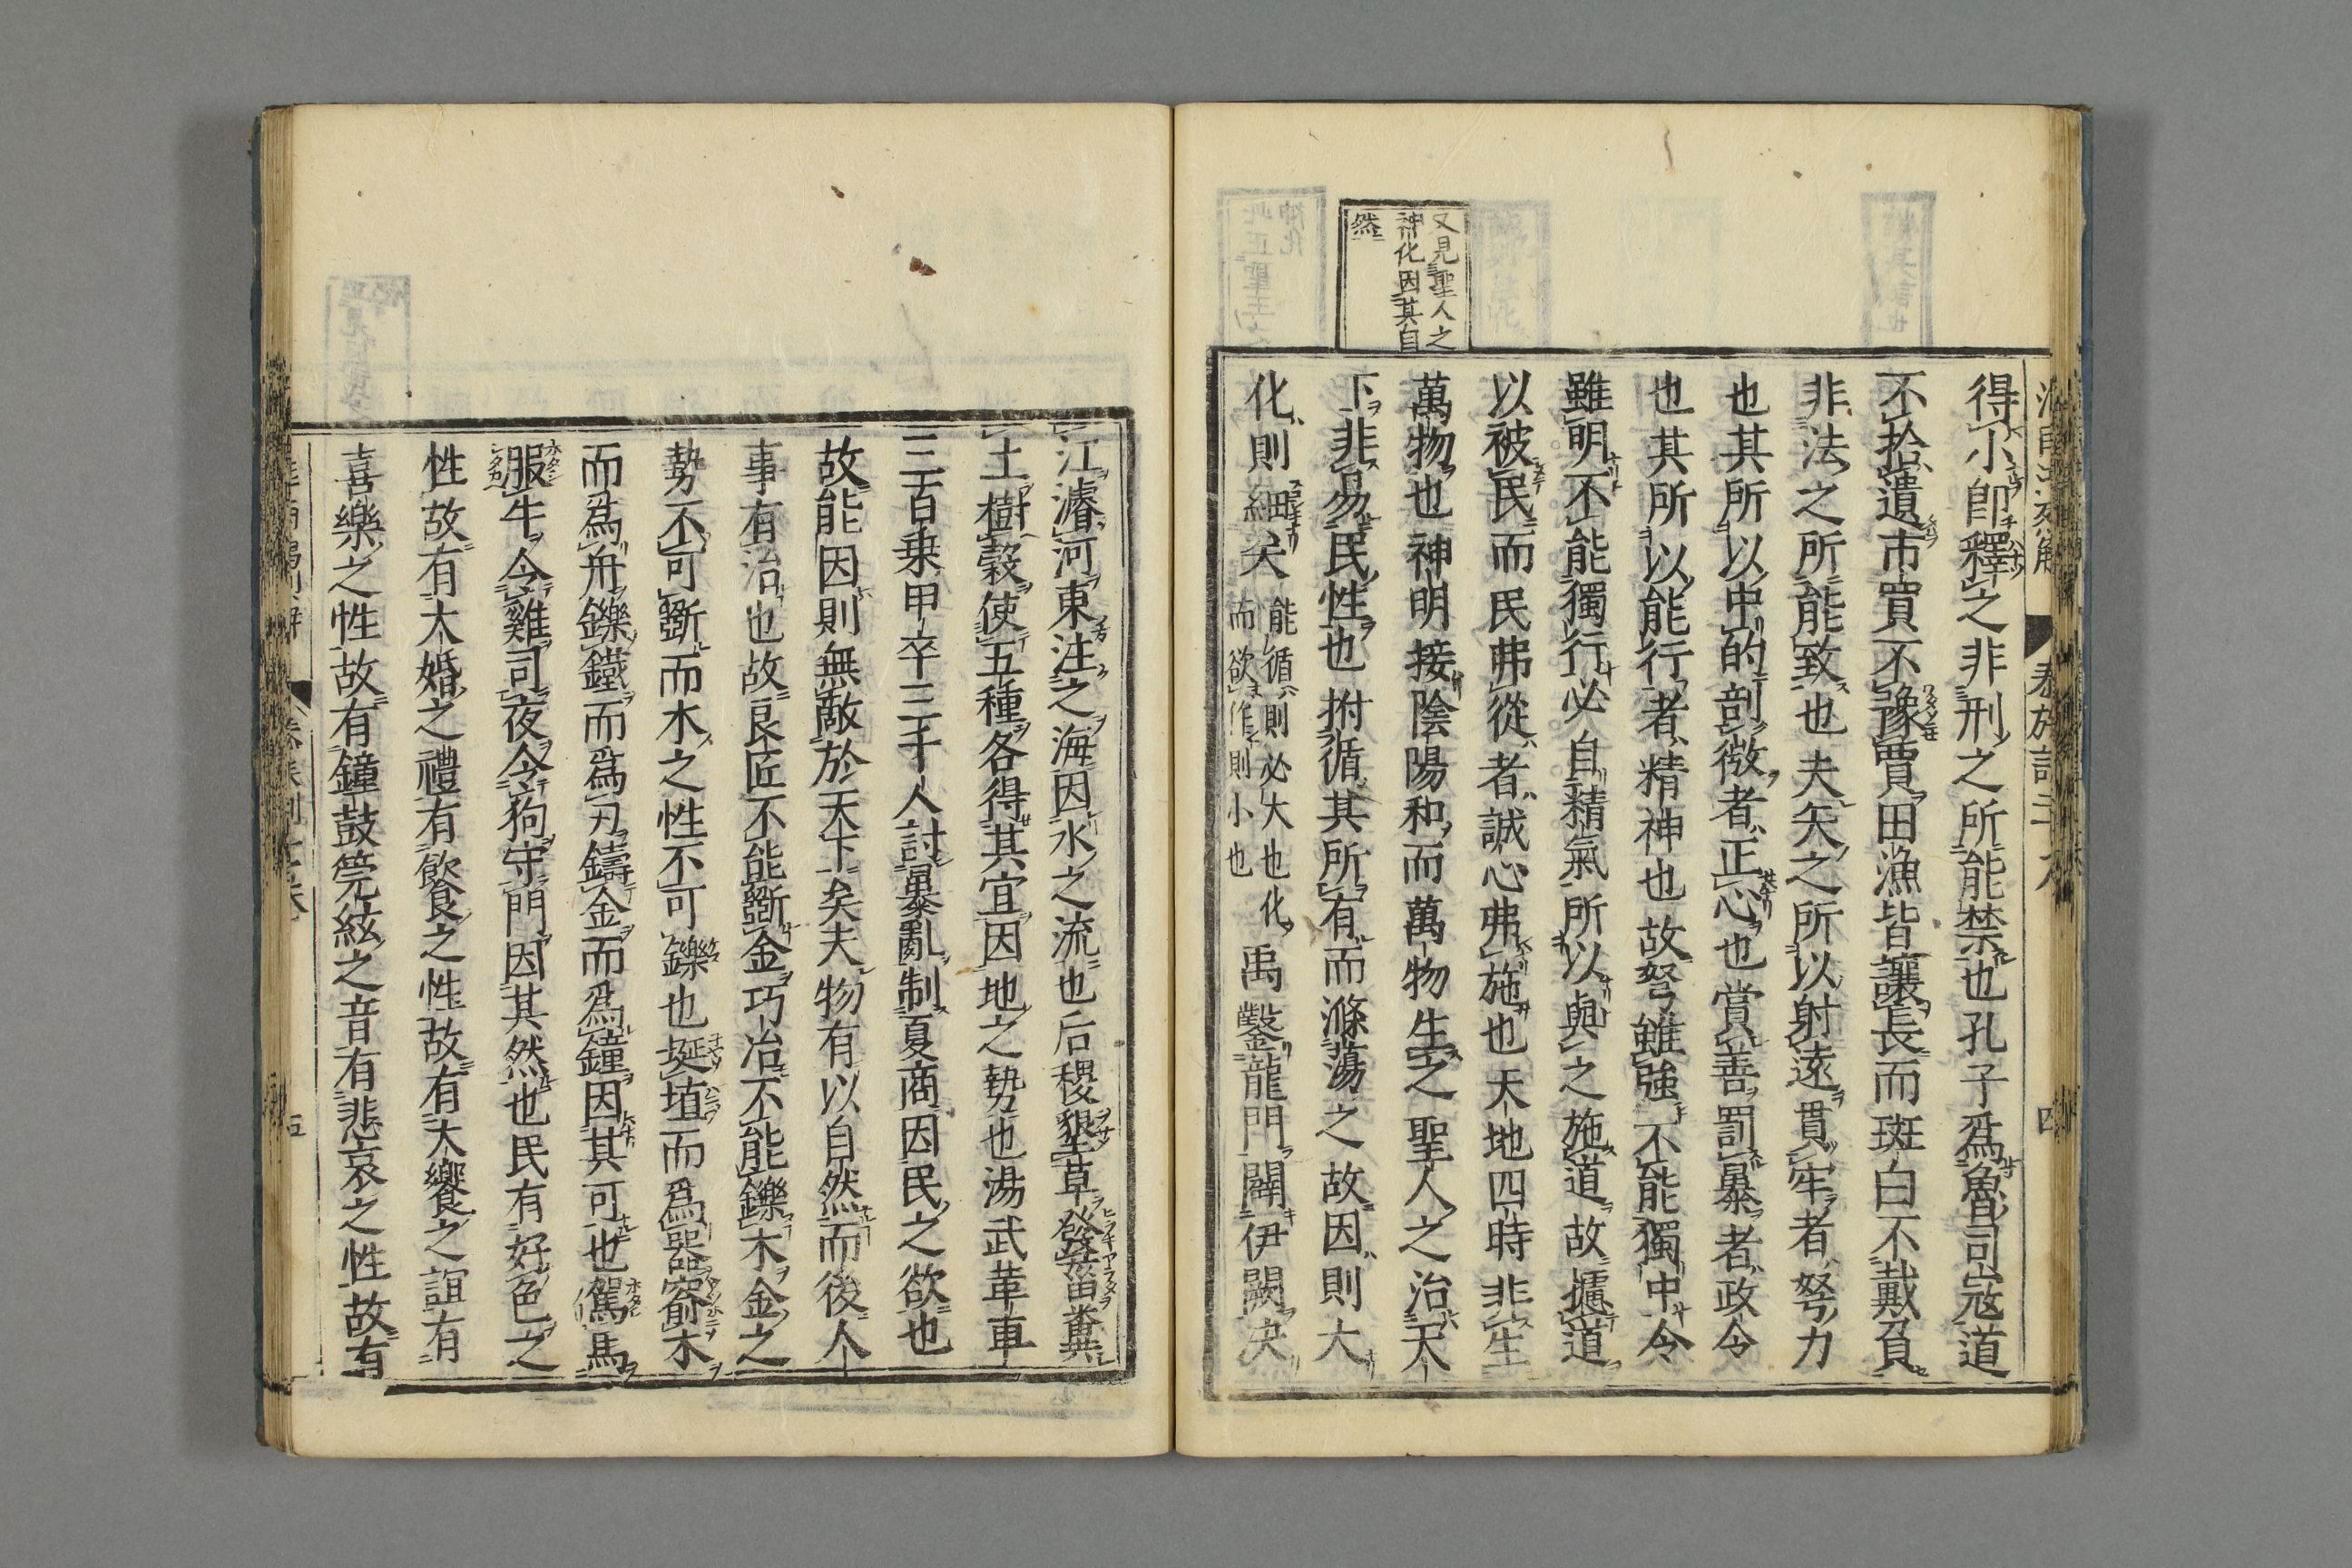 又見聖人之
神化因其自
然
得小卽釋之非刑之所能禁也孔子爲魯司寇道
不拾遺市買不豫賈田漁皆讓長而斑白不戴負
非法之所能致也夫矢之所以射遠貫牢者弩力
也其所以中的剖微者正心也賞善罰暴者政令
也其所以能行者精神也故弩雖強不能獨中令
雖明不能獨行必自精氣所以與之施道故攄道
以被民而民弗從者誠心弗施也天地四時非生
萬物也神明接陰陽和而萬物生之聖人之治天
下非易民性也拊循其所有而滌蕩之故因則大
化則細矣能循則必大也化而欲作則小也禹鑿龍門闢伊闕決
江濬河東注之海因水之流也后稷墾草發菑糞
土樹穀使五種各得其宜因地之勢也湯武革車
三百乗甲卒三千人討暴亂制夏商因民之欲也
故能因則無敵於天下矣夫物有以自然而後人
事有治也故良匠不能斵金巧冶不能鑠木金之
勢不可斵而木之性不可鑠也埏埴而爲器窬木
而爲舟鑠鐵而爲刃鑄金而爲鐘因其可也駕馬
服牛令雞司夜令狗守門因其然也民有好色之
性故有大婚之禮有飮食之性故有大饗之誼有
喜樂之性故有鐘鼓筦絃之音有悲哀之性故有